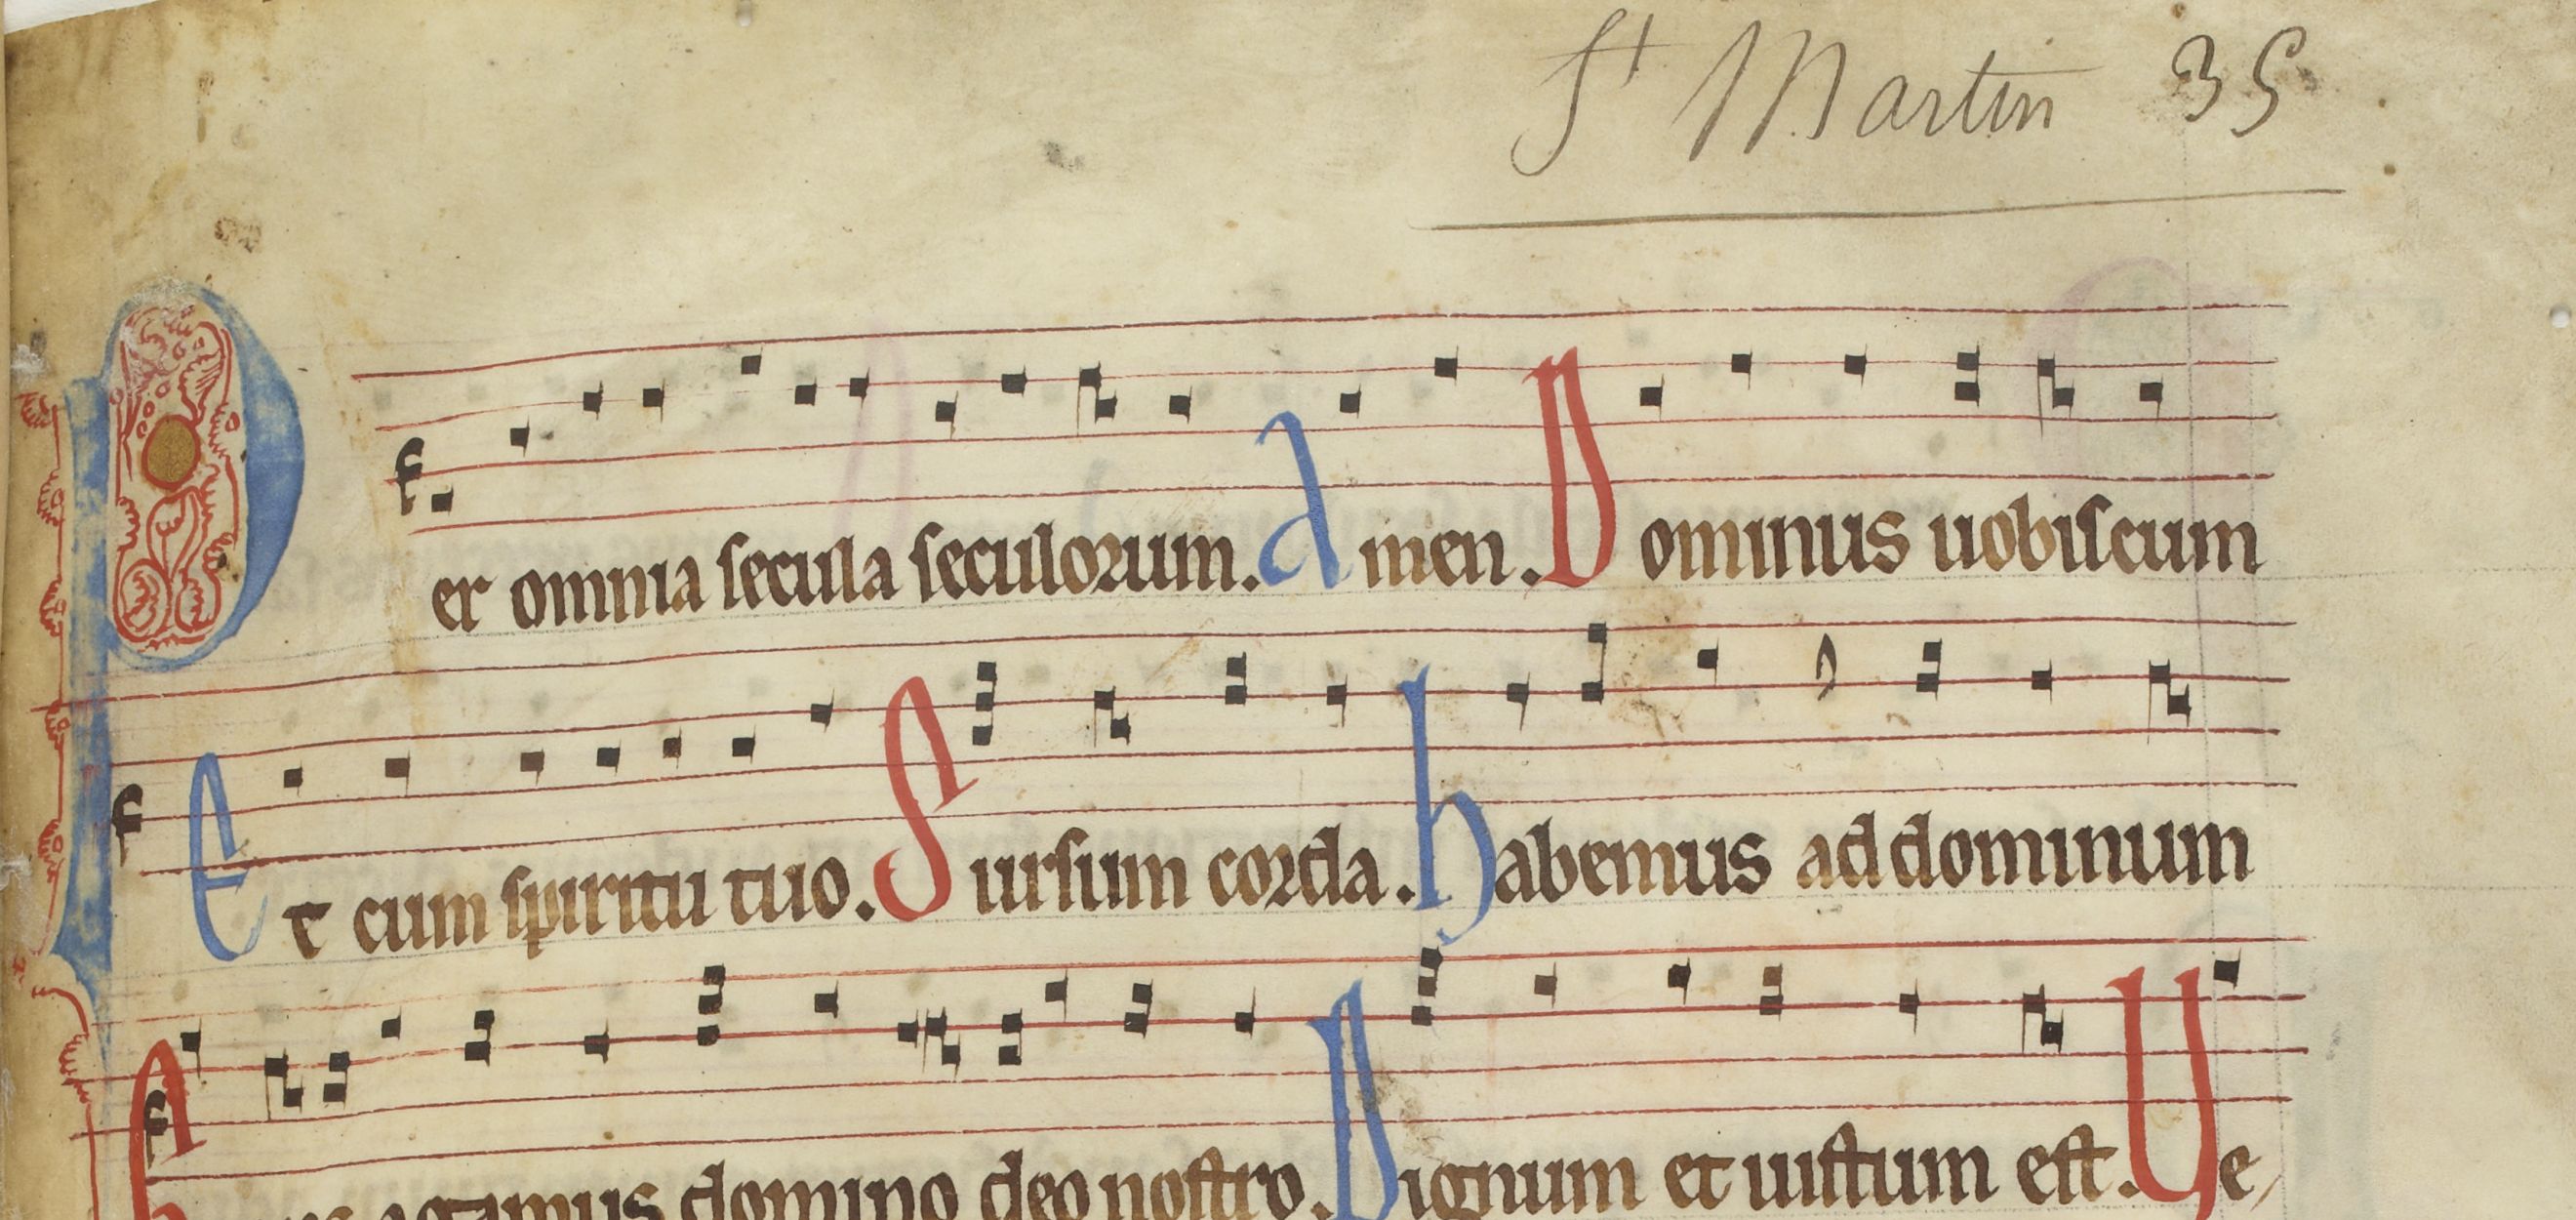 St Martin 35
Per omnia secula seculorum. Amen. Dominus uobiscum
Et cum spiritu tuo. Sursum corda. habemus ad dominum
agamus domino deo nostro. Dignum et iustum est. Ve